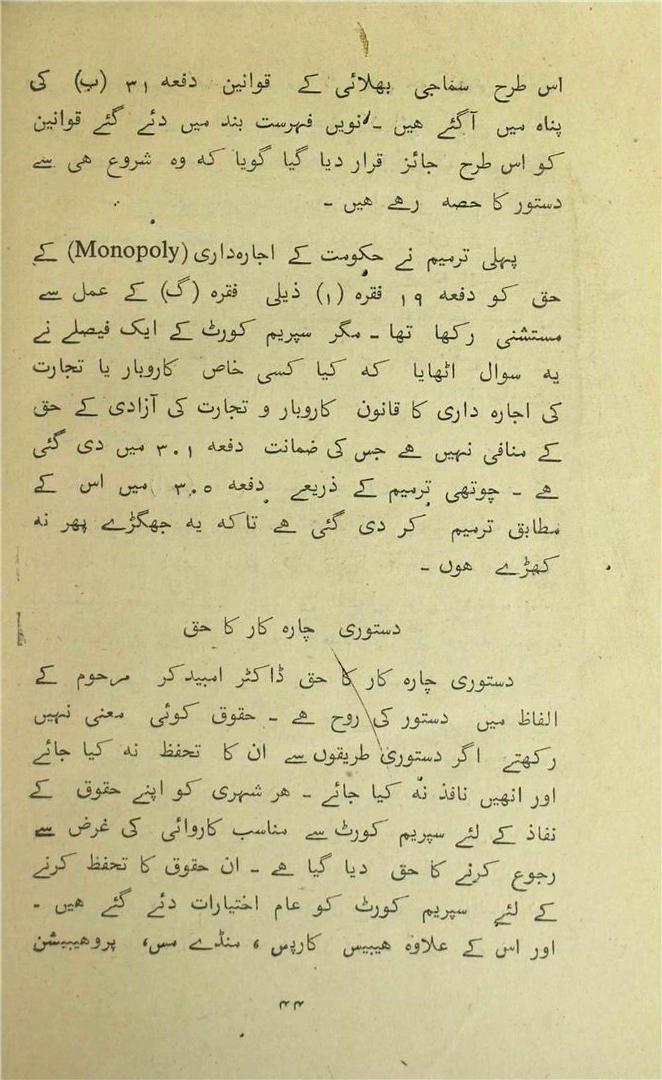 اس طرح سماجی بھلائی کے قوانین دفعہ ۳۱ (ب) کی
پناہ میں آگئے ھیں ۔ نویں فہرست بند میں دئے گئے قوانین
کو اس طرح جائز قرار دیا گیا گویا کہ وہ شروع ھی سے
دستور کا حصہ رھے ھیں ۔
پہلی ترمیم نے حکومت کے اجارہ‌داری (Monopoly) کے
حق کو دفعہ ۱۹ فقرہ (۱) ذیلی فقرہ (گ) کے عمل سے
مستشنی رکھا تھا ۔ مگر سپریم کورٹ کے ایک فیصلے نے
یہ سوال اٹھایا کہ کیا کسی خاص کاروبار یا تجارت
کی اجارہ داری کا قانون کاروبار و تجارت کی آزادی کے حق
کے منافی نہیں ھے جس کی ضمانت دفعہ ۳۰۱ میں دی گئی
ھے ۔ چوتھی ترمیم کے ذریعے دفعہ ۳۰۵ میں اس کے
مطابق ترمیم کر دی گئی ھے تاکہ یہ جھگڑے پھر نہ
کھڑے ھوں ۔
دستوری چارہ کار کا حق
دستوری چارہ کار کا حق ڈاکٹر امبیدکر مرحوم کے
الفاظ میں دستور کی روح ھے ۔ حقوق کوئی معنی نہیں
رکھتے اگر دستوری طریقوں سے ان کا تحفظ نہ کیا جائے
اور انھیں نافذ نہ کیا جائے ۔ ھر شہری کو اپنے حقوق کے
نفاذ کے لئے سپریم کورٹ سے مناسب کاروائی کی غرض سے
رجوع کرنے کا حق دیا گیا ھے ۔ ان حقوق کا تحفظ کرنے
کے لئے سپریم کورٹ کو عام اختیارات دئے گئے ھیں ۔
اور اس کے علاوہ ھیبیس کارپس ، منڈے مس، پروھیبیشن
۴۴